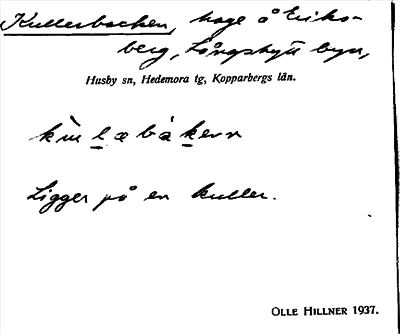 Kullerbacken, hage å Eriks-
berg, Långshytte byn,
Husby sn, Hedemora tg, Kopparbergs län.
Ligger på en kuller.
OLLE HILLNER 1937.